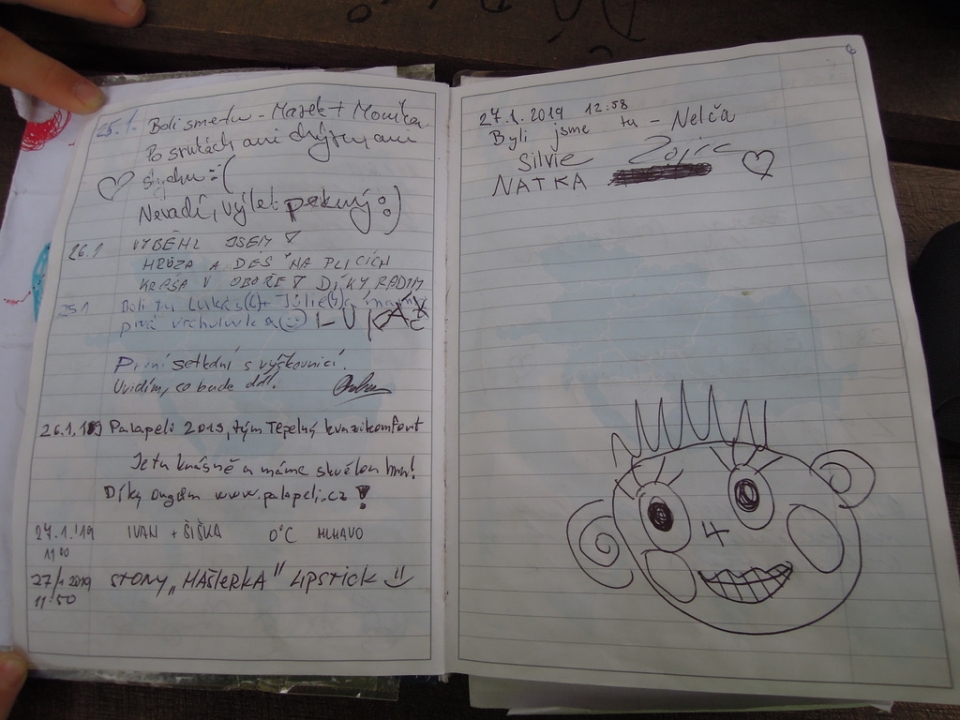 25.1. Boli sme tu - Marek + Monika
Po srnkách ani chýru ani
slychu :(
Nevadí, výlet pekný :)
26.1 VYBĚHL JSEM
HRŮZA A DĚS NA PLICÍCH
KRÁSA V OBOŘE DÍKY RADIM
25.1 Boli tu Lukáš(6) + Júlie
prvá vrcholovka LUKÁŠ
První setkání s výškovnicí.
Uvidím, co bude dál.
26.1.19 Palapeli 2019, tým Tepelný kvazikomfort
Je tu krásně a máme skvělou hru!
Díky orgům www.palapeli.cz!
27.1.'19 IVAN + ŠIŠKA 0°C MLHAVO
11 00
27/1 2019 STONY "HAŠLERKA" LIPSTICK
11:50
6
27.1.2019 12:58
Byli jsme tu - Nelča
Silvie
NATKA